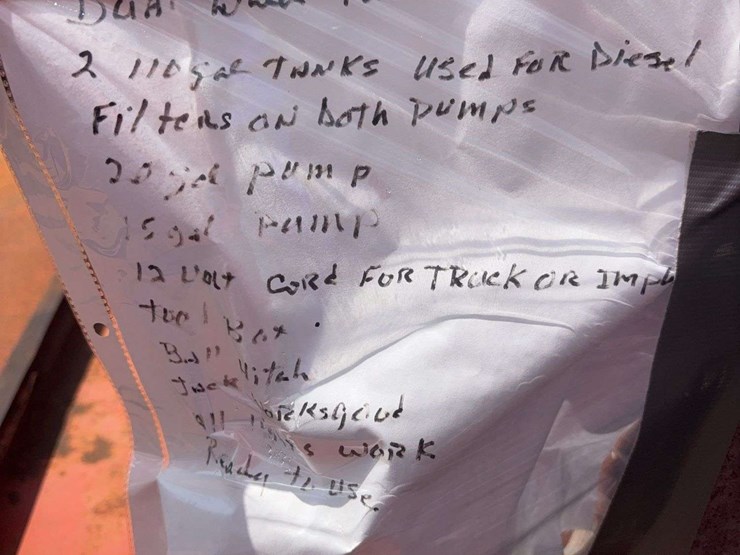 Dual
2 110 gal TANKS Used FOR Diesel
Filters ON both PUMPS
20 gal pump
15 gal PUMP
12 Volt CORd FOR TRUCK OR Impl
tool Box .
Ball Hitch
Jack
All works good
work
Ready to Use.